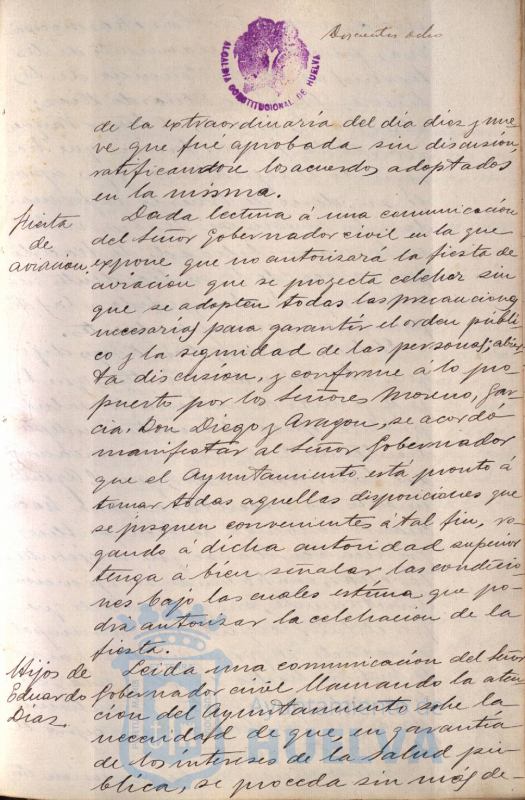 Doscientos ocho
ALCALDIA CONSTITUCIONAL DE HUELVA
de la extraordinaria del dia diez y nue-
ve que fue aprobada sin discusión,
ratificandose los acuerdos adoptados
en la misma.
Fiesta de aviación.
Dada lectura á una comunicación
del Señor Gobernador civil en la que
expone que no autorizará la fiesta de
aviación que se proyecta celebrar sin
que se adopten todas las precauciones
necesarias para garantir el orden públi-
co y la seguridad de las personas; abier-
ta discusión, y conforme á lo pro-
puesto por los Señores Moreno, Gar-
cia, Don Diego y Aragon, se acordó
manifestar al Señor Gobernador
que el Ayuntamiento está pronto á
tomar todas aquellas disposiciones que
se juzguen convenientes á tal fin, ro-
gando á dicha autoridad superior
tenga á bien señalar las condicio-
nes bajo las cuales estima que po-
drá autorizar la celebración de la
fiesta.
Hijos de Eduardo Diaz.
Leida una comunicación del Señor
Gobernador civil llamando la aten-
cion del Ayuntamiento sobre la
necesidad de que en garantia
de los intereses de la Salud pú-
blica, se proceda sin más de-
Ayuntamiento de
HUELVA